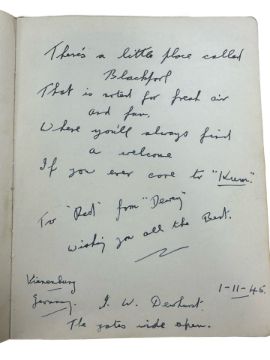 There's a little place called
Blackpool
That is noted for fresh air
and fun,
Where you'll always find
a welcome
If you ever care to "Kum".
To "Red" from "Dewey"
Wishing you all the Best.
1-11-45.
Germany.
J. W. Dewhurst.
The gates wide open.